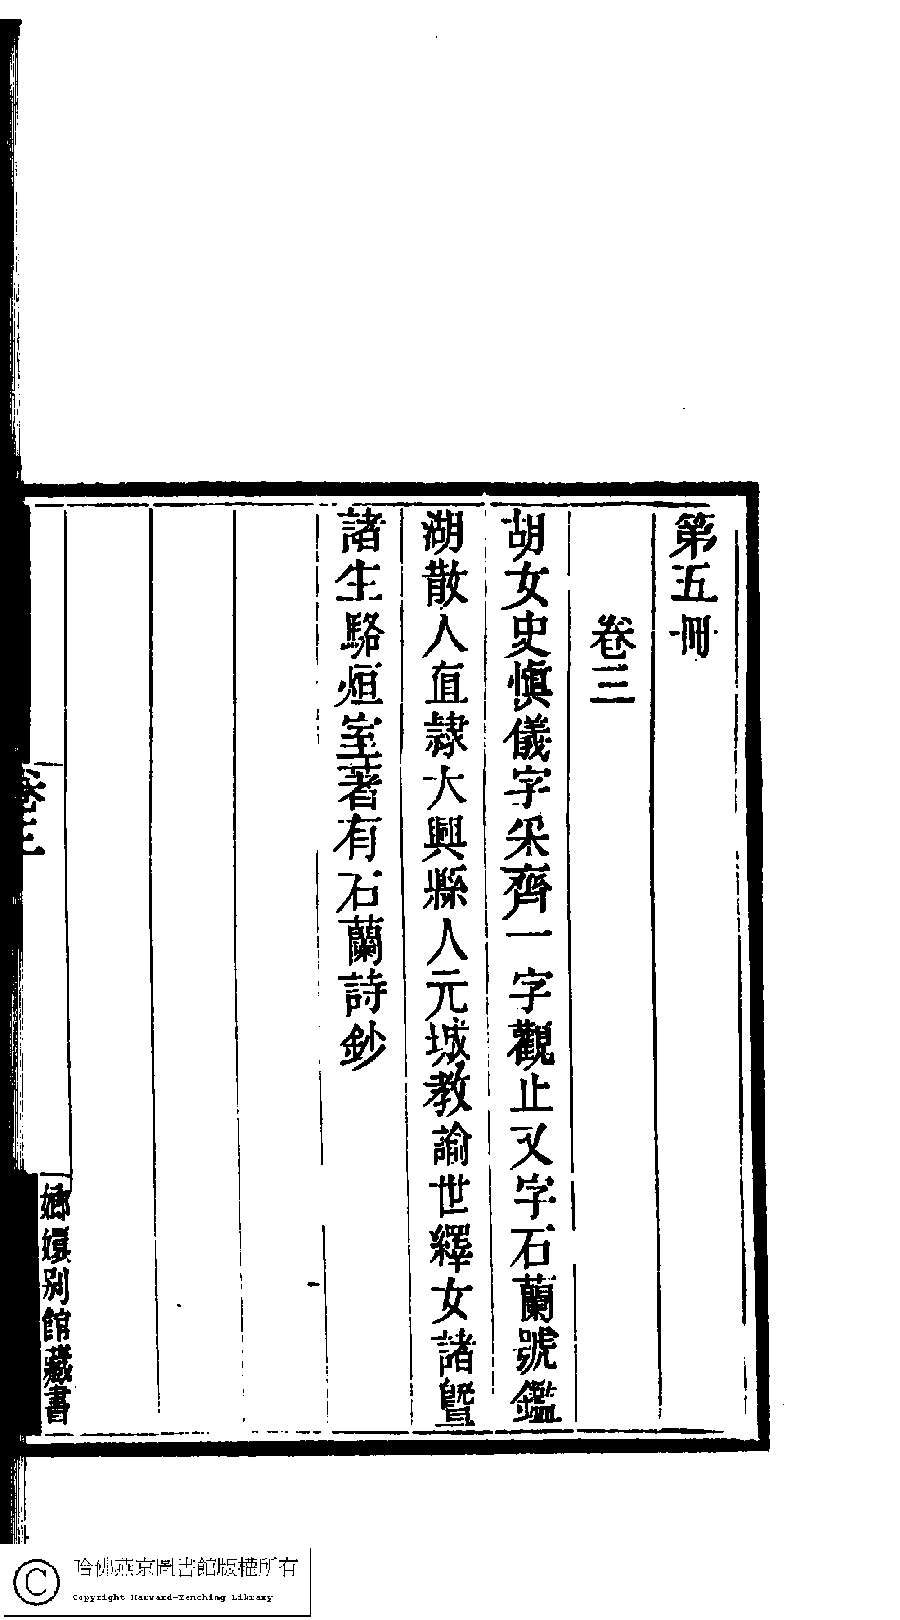 第五冊
卷三
胡女史慎儀字采齊一字觀止又字石蘭號鑑
湖散人直隸大興縣人元城教諭世繹女諸暨
諸生駱烜室著有石蘭詩鈔
卷三
嫏嬛別館藏書
哈佛燕京圖書館版權所有
Copyright Harvard-Yenching Library